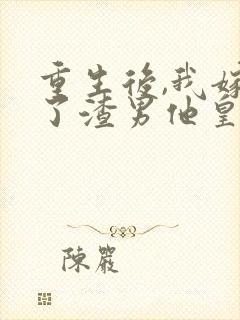 重生後,我嫁
了渣男他皇
陳嚴